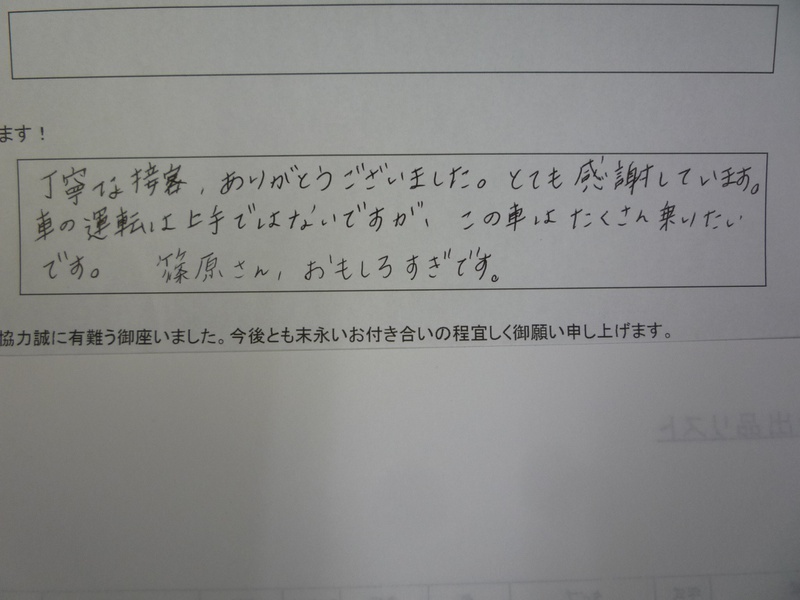 ます！
丁寧な接客、ありがとうございました。とても感謝しています。
車の運転は上手ではないですが、この車はたくさん乗りたい
です。　篠原さん、おもしろすぎです。
協力誠に有難う御座いました。今後とも末永いお付き合いの程宜しく御願い申し上げます。
出品リスト